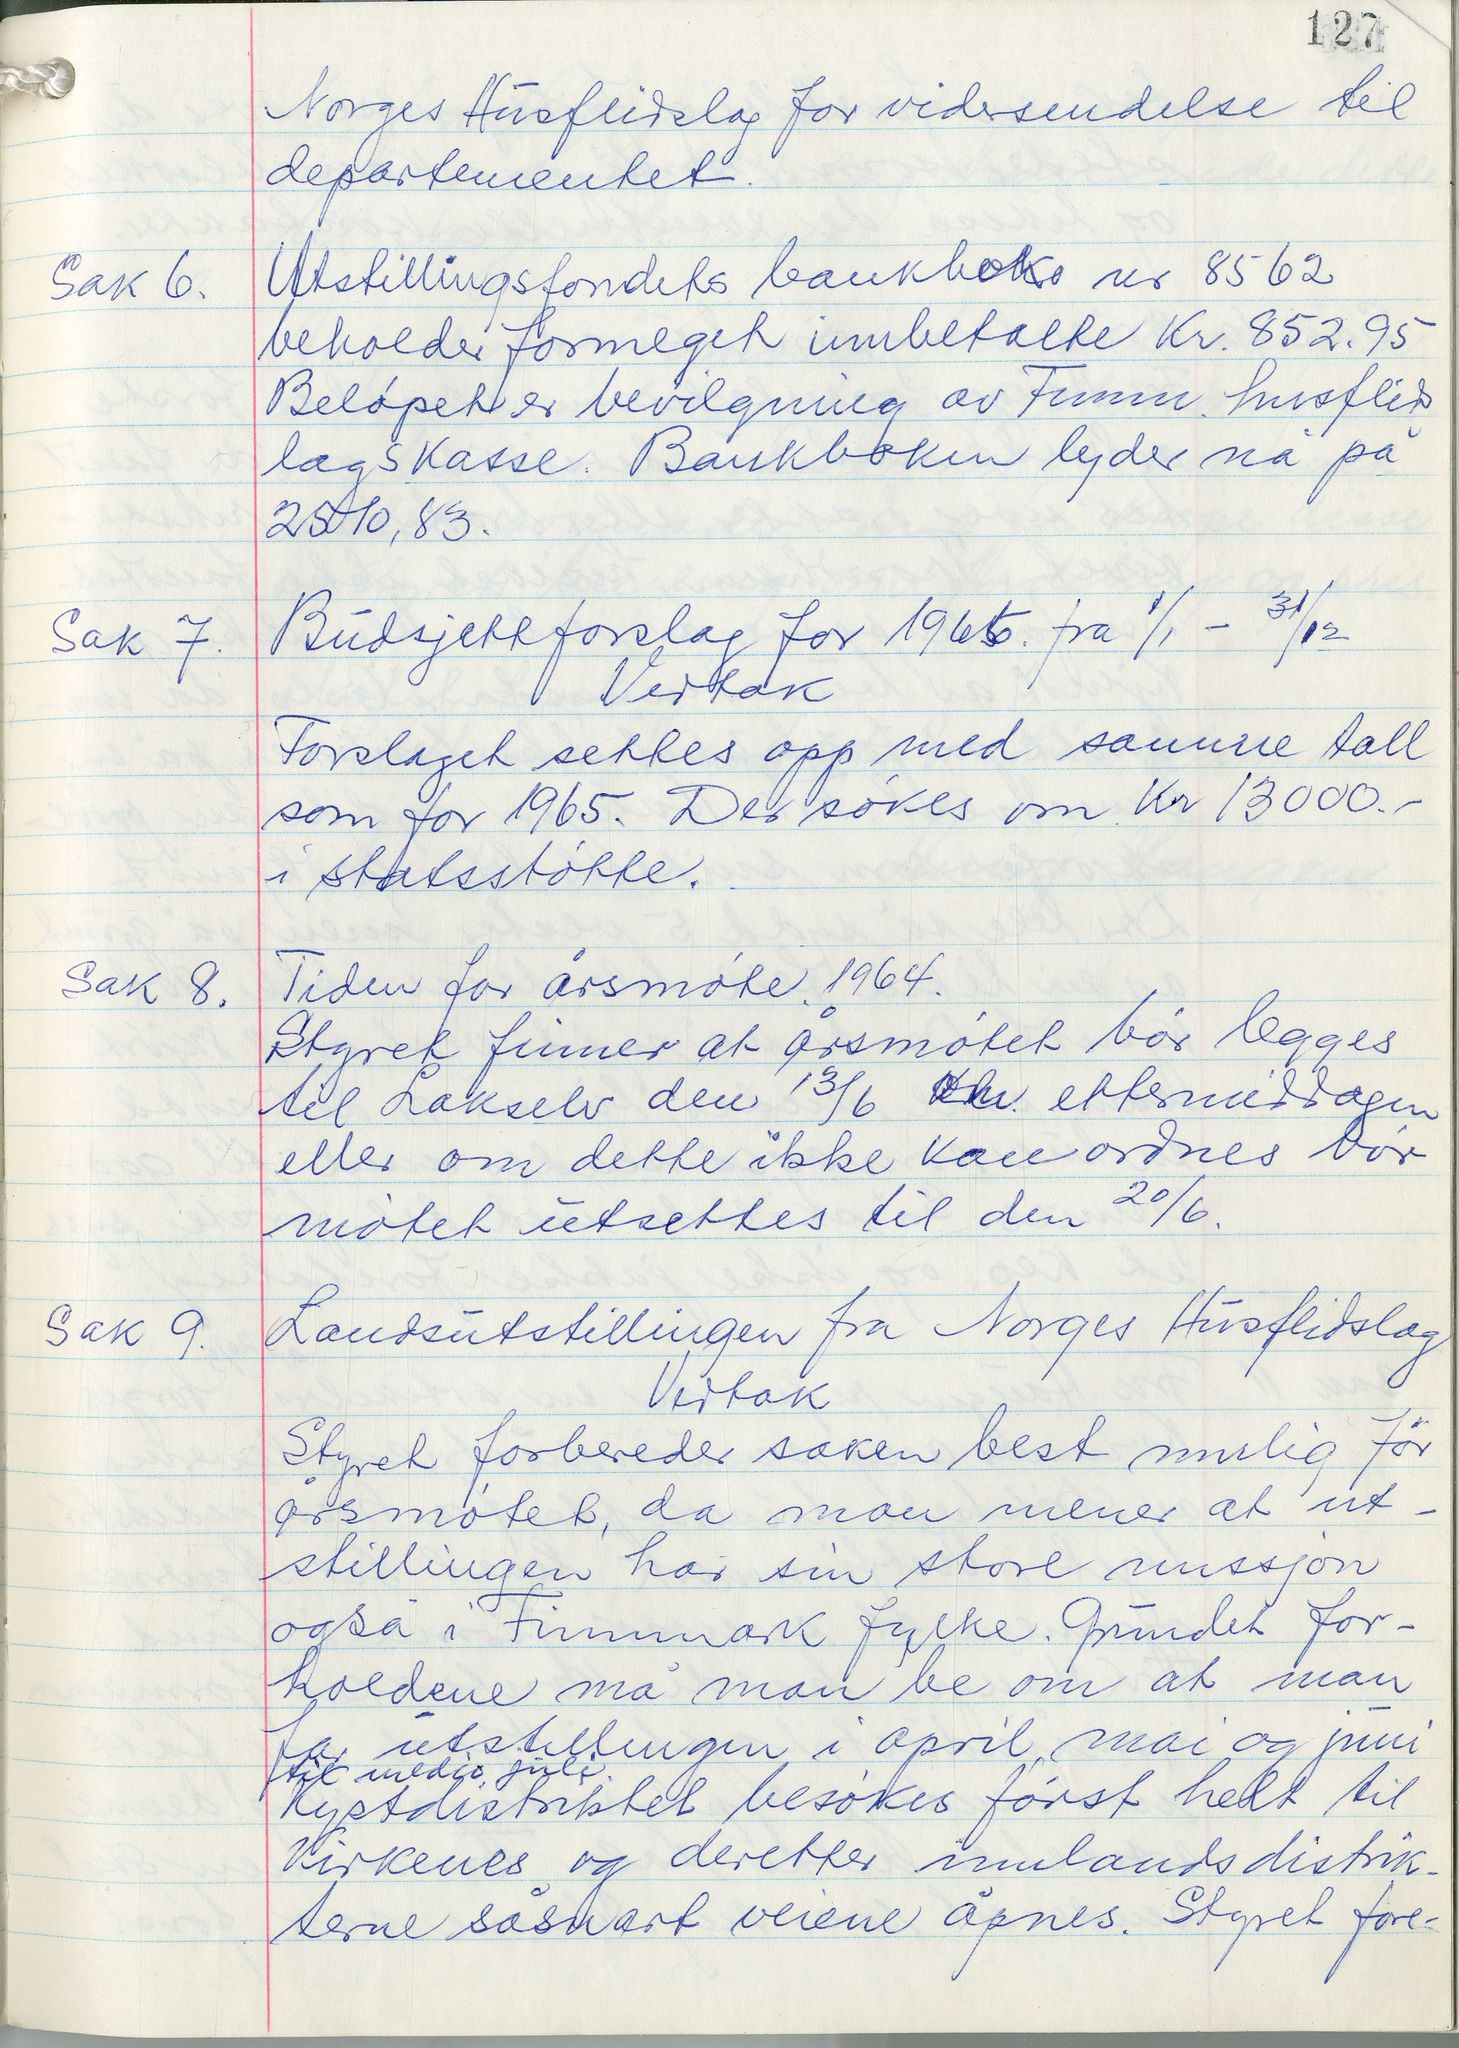 127
Norges Husflidslag for vidersendelse til
departementet.
Sak 6. Utstillingsfondets bankboks nr 8562
beholder formeget innbetalte Kr. 852.95
Beløpet er bevilgning av Finnm. husflids
lags kasse. Bankboken lyder nå på
2510,83.
Sak 7. Budsjettforslag for 1966. fra 1/1 - 31/12
Vedtak
Forslaget settes opp med samme tall
som for 1965. Der søkes om Kr 13000.-
i statsstøtte.
Sak 8. Tiden for årsmøte. 1964.
Styret finner at årsmøtet bør legges
til Lakselv den 13/6 ettermiddagen
eller om dette ikke kan ordnes bør
møtet utsettes til den 20/6.
Sak 9. Landsutstillingen fra Norges Husflidslag
Vedtak
Styret forbereder saken best mulig før
årsmøtet, da man mener at ut-
stillingen har sin store missjon
også i Finnmark fylke. Grundet for-
holdene må man be om at man
får utstillingen i april, mai og juni
til medio juli.
Kystdistriktet besøkes først helt til
Kirkenes og deretter innlandsdistrik-
terne såsnart veiene åpnes. Styret fore-